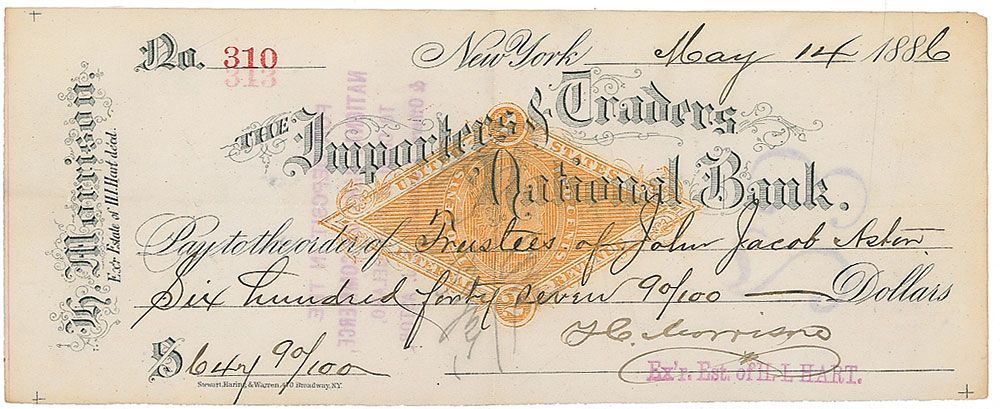 No. 310
313
New York May 14 1886
THE Importers & Traders
National Bank.
UNITED STATES
INTERNAL REVENUE
CENTS
Pay to the order of Trustees of John Jacob Astor
Six hundred forty seven 90/100 — Dollars
$647 90/100
Ex'r. Est. of H. I. HART.
Stewart, Haring & Warren, 470 Broadway, N.Y.
Morrison
Ex'r Estate of H.I. Hart dec'd.